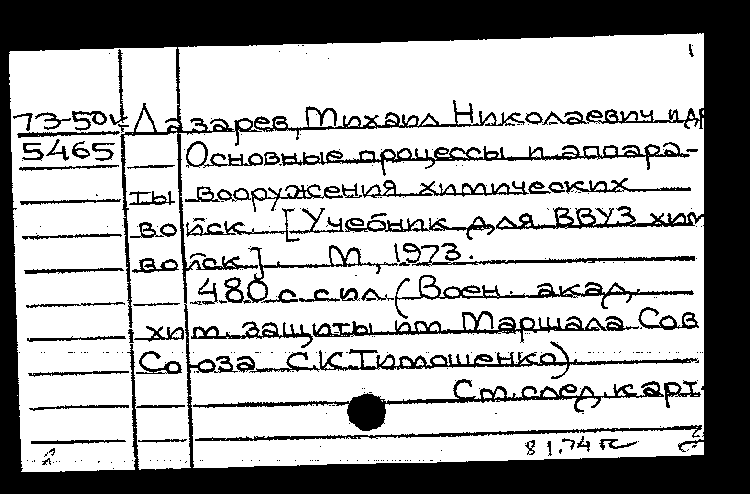 1
73-50к Лазарев, Михаил Николаевич и др
5465 Основные процессы и аппара-
ты вооружения химических
войск. [Учебник для ВВУЗ хим
войск]. М., 1973.
480 с. с ил. (Воен. акад.
хим. защиты им. Маршала Сов
Союза С.К. Тимошенко).
См. след. карт.
81.74